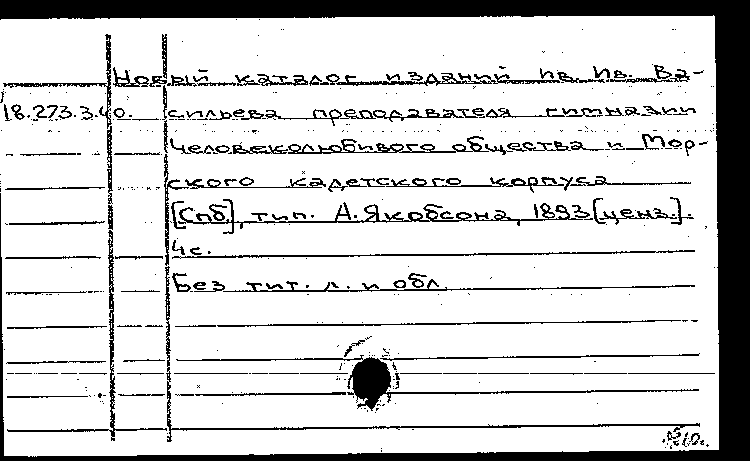 Новый каталог изданий Ив. Ив. Ва-
18.273.3.40. сильева преподавателя гимназии
Человеколюбивого общества и Мор-
ского кадетского корпуса
[Спб], тип. А. Якобсона, 1893 [ценз.].
4 с.
Без тит. л. и обл.